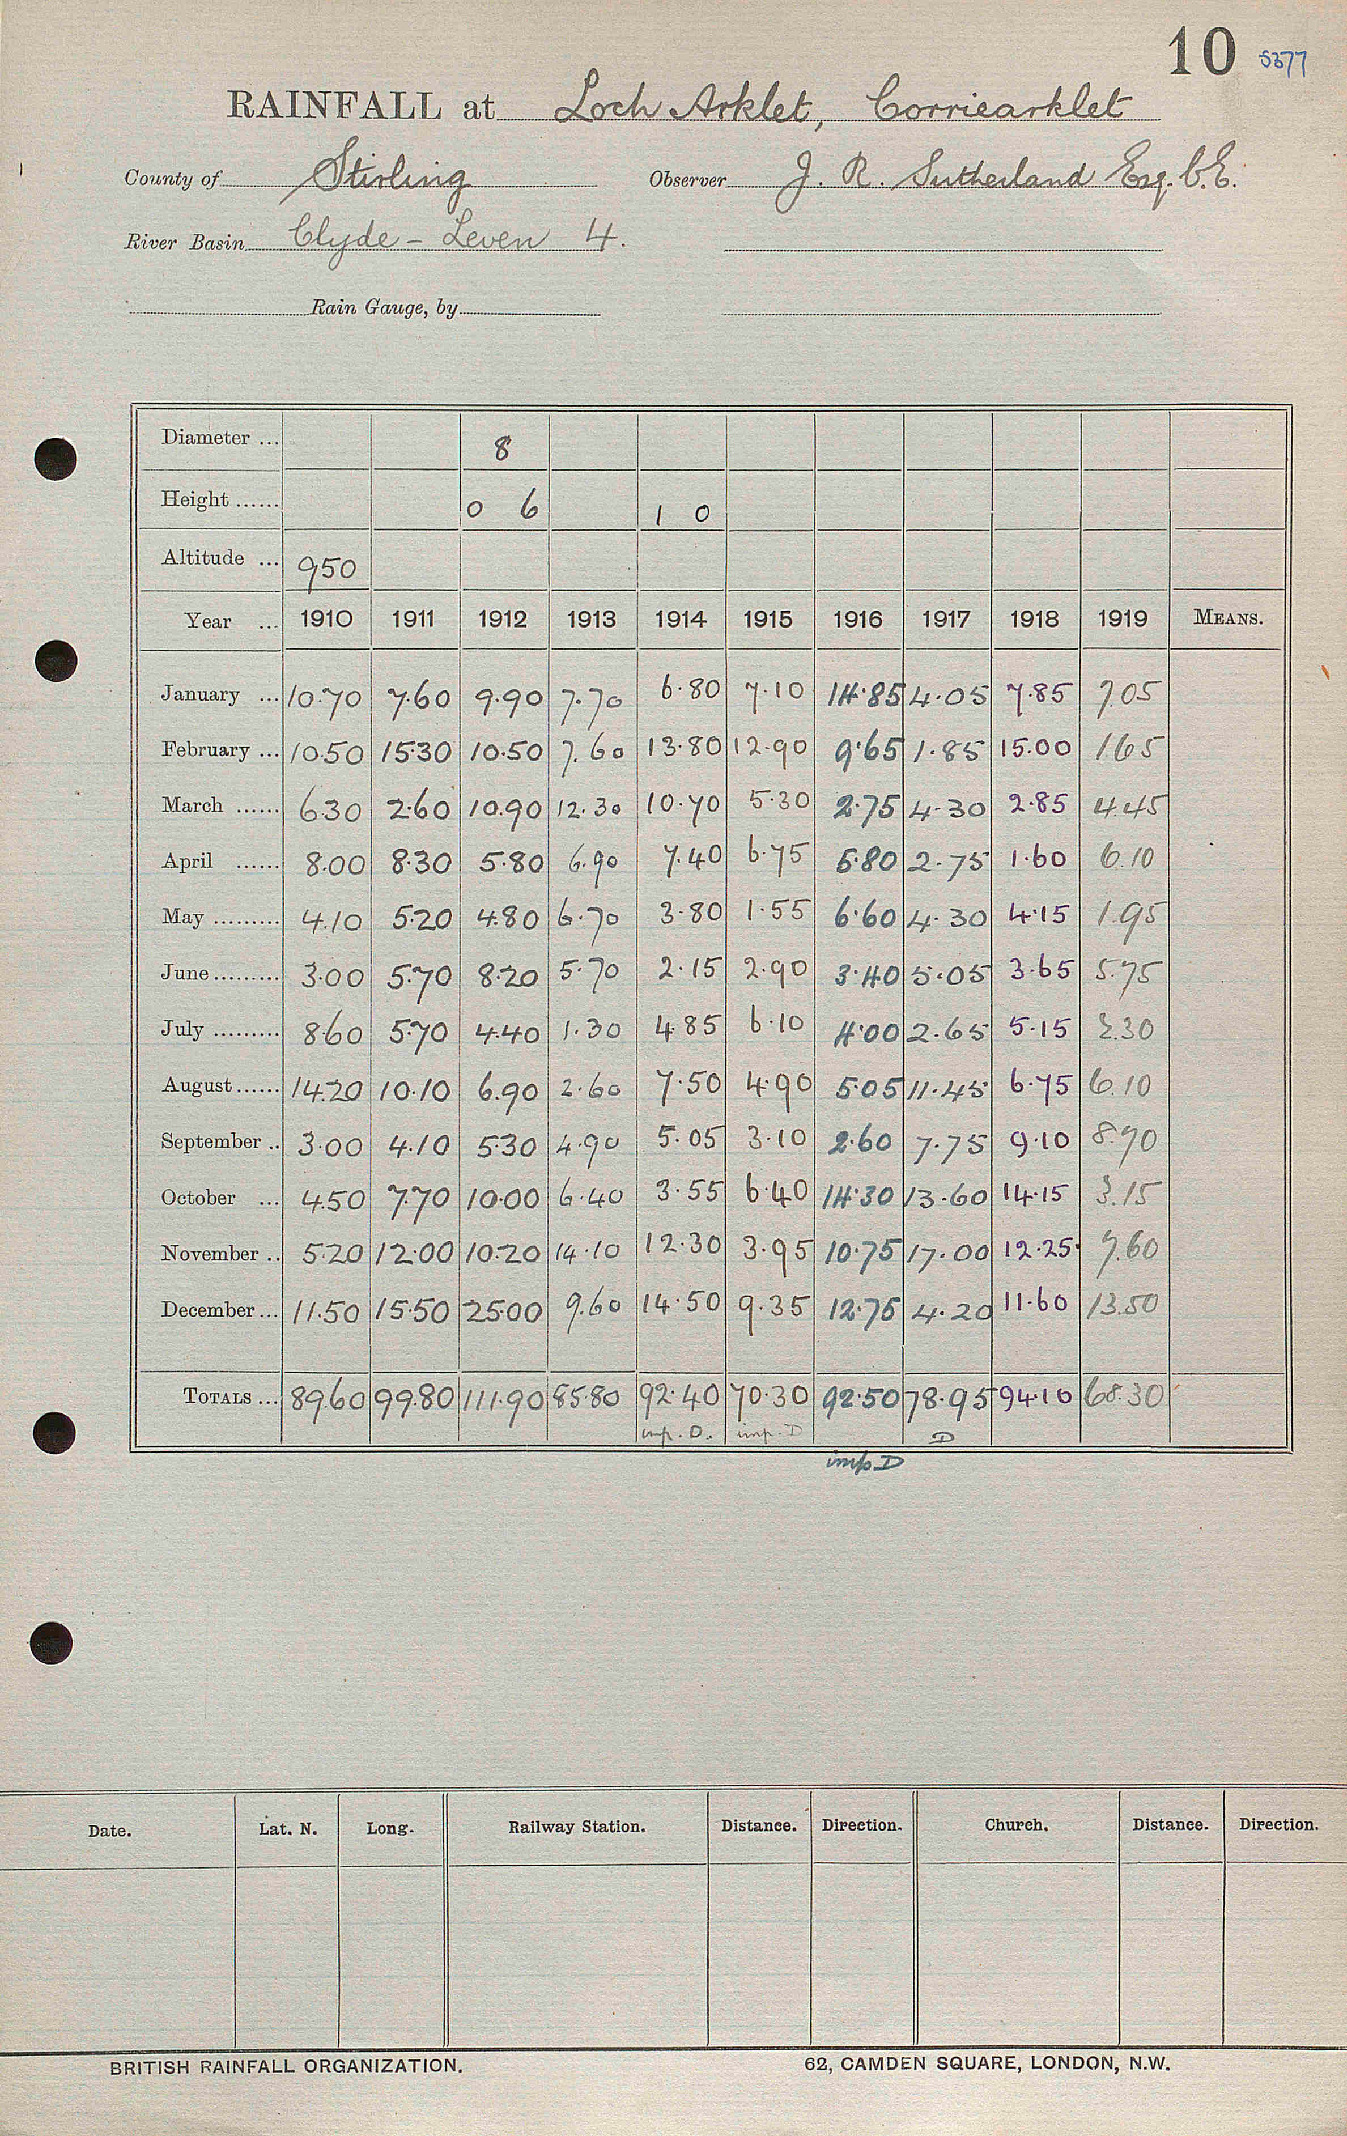 10 5377
RAINFALL at Loch Arklet, Corriearklet
County of Stirling Observer J. R. Sutherland Esq. C.E.
River Basin Clyde - Leven 4.
Rain Gauge, by
Diameter ... 8
Height ...... 0 6 1 0
Altitude ... 950
Year ... 1910 1911 1912 1913 1914 1915 1916 1917 1918 1919 MEANS.
January ... 10.70 7.60 9.90 7.70 6.80 7.10 14.85 4.05 7.85 7.05
February ... 10.50 15.30 10.50 7.60 13.80 12.90 9.65 1.85 15.00 1.65
March ...... 6.30 2.60 10.90 12.30 10.70 5.30 2.75 4.30 2.85 4.45
April ...... 8.00 8.30 5.80 6.90 7.40 6.75 5.80 2.75 1.60 6.10
May ......... 4.10 5.20 4.80 6.70 3.80 1.55 6.60 4.30 4.15 1.95
June ......... 3.00 5.70 8.20 5.70 2.15 2.90 3.40 5.05 3.65 5.75
July ......... 8.60 5.70 4.40 1.30 4.85 6.10 4.00 2.65 5.15 2.30
August ...... 14.20 10.10 6.90 2.60 7.50 4.90 5.05 11.45 6.75 6.10
September .. 3.00 4.10 5.30 4.90 5.05 3.10 2.60 7.75 9.10 8.70
October ... 4.50 7.70 10.00 6.40 3.55 6.40 14.30 13.60 14.15 3.15
November .. 5.20 12.00 10.20 14.10 12.30 3.95 10.75 17.00 12.25 7.60
December ... 11.50 15.50 25.00 9.60 14.50 9.35 12.75 4.20 11.60 13.50
TOTALS ... 89.60 99.80 111.90 85.80 92.40 70.30 92.50 78.95 94.10 68.30
imp. D. imp. D D
imp D
Date. Lat. N. Long. Railway Station. Distance. Direction. Church. Distance. Direction.
BRITISH RAINFALL ORGANIZATION. 62, CAMDEN SQUARE, LONDON, N.W.